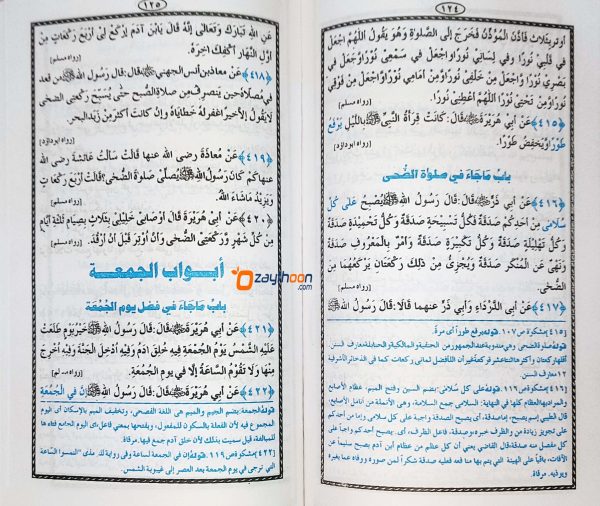 ١٢٤
اوتربثلاث فاذن المؤذن فخرج إلى الصلوة وهو يقول اللهم اجعل
في قلبي نورا وفي لساني نورا واجعل في سمعي نورا واجعل في
بصري نورا واجعل من خلفي نورا ومن امامي نورا واجعل من فوقي
نورا ومن تحتي نورا اللهم أعطني نورا. [رواه مسلم]
﴿٤١٥﴾ عن أبي هريرة ﷺ قال: كانت قرأة النبي ﷺ بالليل يرفع
طورا ويخفض طورا. [رواه ابوداؤد]
باب ماجاء في صلوة الضحى
﴿٤١٦﴾ عن أبي ذر قال: قال رسول الله ﷺ يصبح على كل
سلامى من أحدكم صدقة فكل تسبيحة صدقة وكل تحميدة صدقة
وكل تهليلة صدقة وكل تكبيرة صدقة وامر بالمعروف صدقة
ونهي عن المنكر صدقة ويجزئ من ذلك ركعتان يركعهما من
الضحى. [رواه مسلم]
﴿٤١٧﴾ عن أبي الدرداء وأبي ذر عنهما قالا: قال رسول الله ﷺ
[٤١٥] مشكوة ص١٠٧. قوله يرفع طورا أي مرة.
[٤١٦] مشكوة ص١١٦. قوله على كل سلامى: بضم السين وفتح الميم، عظام الأصابع
والمراد بها العظام كلها في النهاية: السلامى جمع السلامية، وهي الأنملة من أنامل الأصابع،
١٢٥
عن الله تبارك وتعالى إنه قال يابن آدم اركع لي أربع ركعات من
أول النهار أكفك اخره. [رواه مسلم]
﴿٤١٨﴾ عن معاذ بن انس الجهني قال: قال رسول الله ﷺ من قعد
في مصلاه حين ينصرف من صلاة الصبح حتى يسبح ركعتي الضحى
لا يقول إلا خيرا غفر له خطاياه وإن كانت أكثر من زبد البحر.
[رواه ابوداؤد]
﴿٤١٩﴾ عن معاذة رضى الله عنها قالت سألت عائشة رضى الله
عنها كم كان رسول الله ﷺ يصلي صلوة الضحى؟ قالت أربع ركعات
ويزيد ماشاء الله. [رواه مسلم]
﴿٤٢٠﴾ عن أبي هريرة قال أوصاني خليلي بثلاث بصيام ثلثة أيام
من كل شهر وركعتي الضحى وأن أوتر قبل أن أرقد.
أبواب الجمعة
باب ماجاء في فضل يوم الجمعة
﴿٤٢١﴾ عن أبي هريرة قال: قال رسول الله ﷺ خير يوم طلعت
عليه الشمس يوم الجمعة فيه خلق آدم وفيه أدخل الجنة وفيه أخرج
منها ولا تقوم الساعة إلا في يوم الجمعة. [رواه مسلم]
﴿٤٢٢﴾ عن أبي هريرة قال: قال رسول الله ﷺ إن في الجمعة
قوله الجمعة: بضم الجيم والميم هي اللغة الفصحى، وتخفيف الميم بالإسكان أي اليوم
للمبالغة، قيل سميت بذلك لأن خلق آدم جمع فيها. مرقاة.
[٤٢٢] مشكوة ص١١٩. قوله إن في الجمعة لساعة وفي رواية
التي ترجى في يوم الجمعة بعد العصر إلى غيبوبة الشمس
Ozaythoon
.com